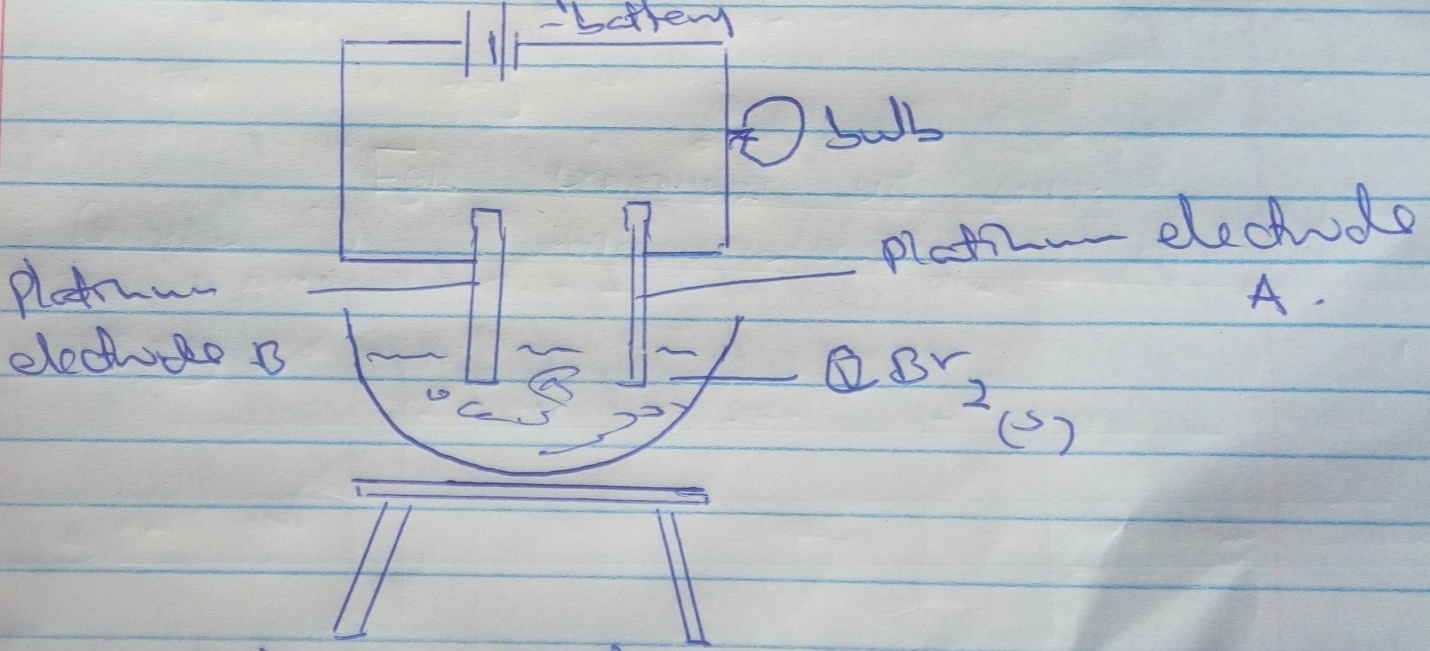 -battery
bulb
platinum electrode
A.
Platinum
electrode B
QBr2(s)